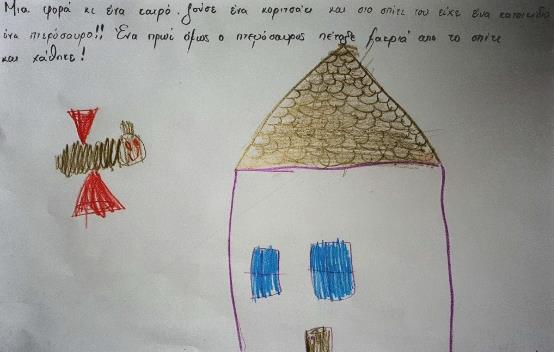 Μια φορά κι ένα καιρό, ζούσε ένα κοριτσάκι και στο σπίτι του είχε ένα κατοικίδιο
ένα πτερόσαυρο!! Ένα πρωί όμως ο πτερόσαυρος πέταξε μακριά από το σπίτι
και χάθηκε!